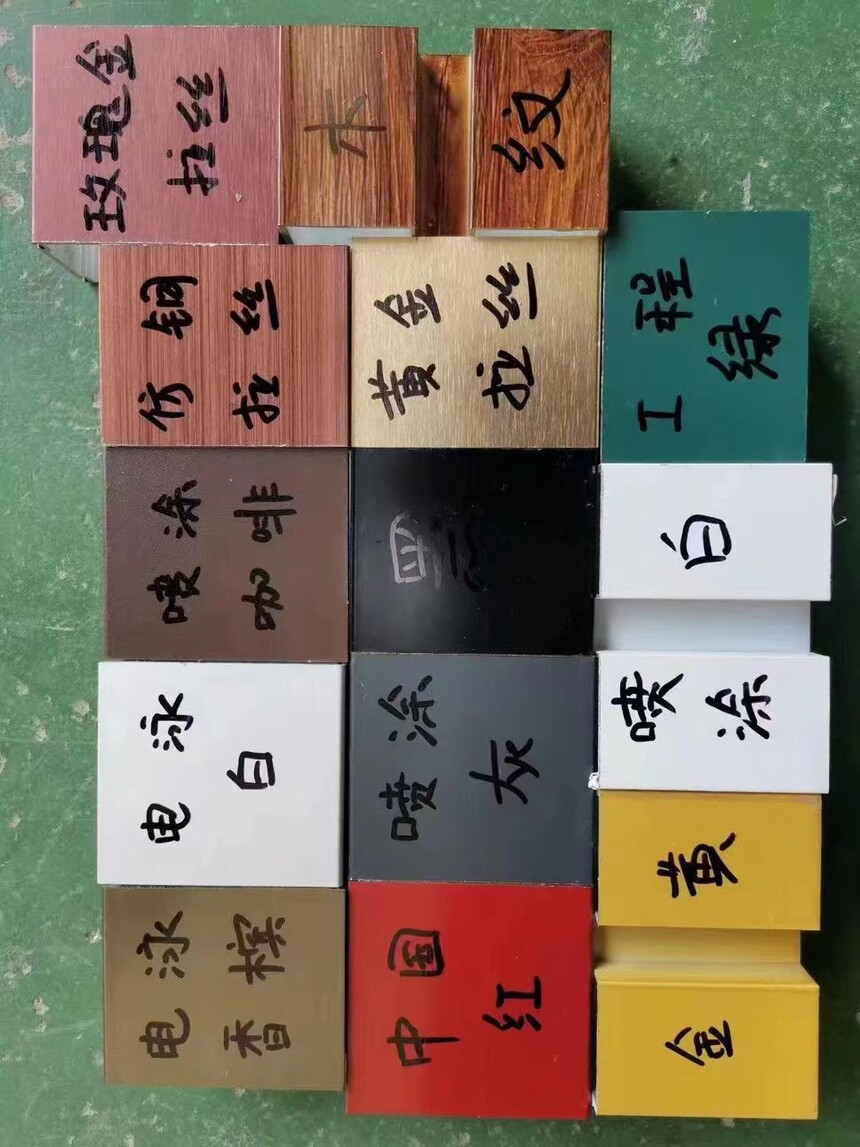 电泳
香槟
电泳
白
喷涂
咖啡
仿铜
拉丝
玫瑰金
拉丝
中国
红
喷涂
灰
黑
黄金
拉丝
木纹
金黄
喷
涂
白
工程
绿